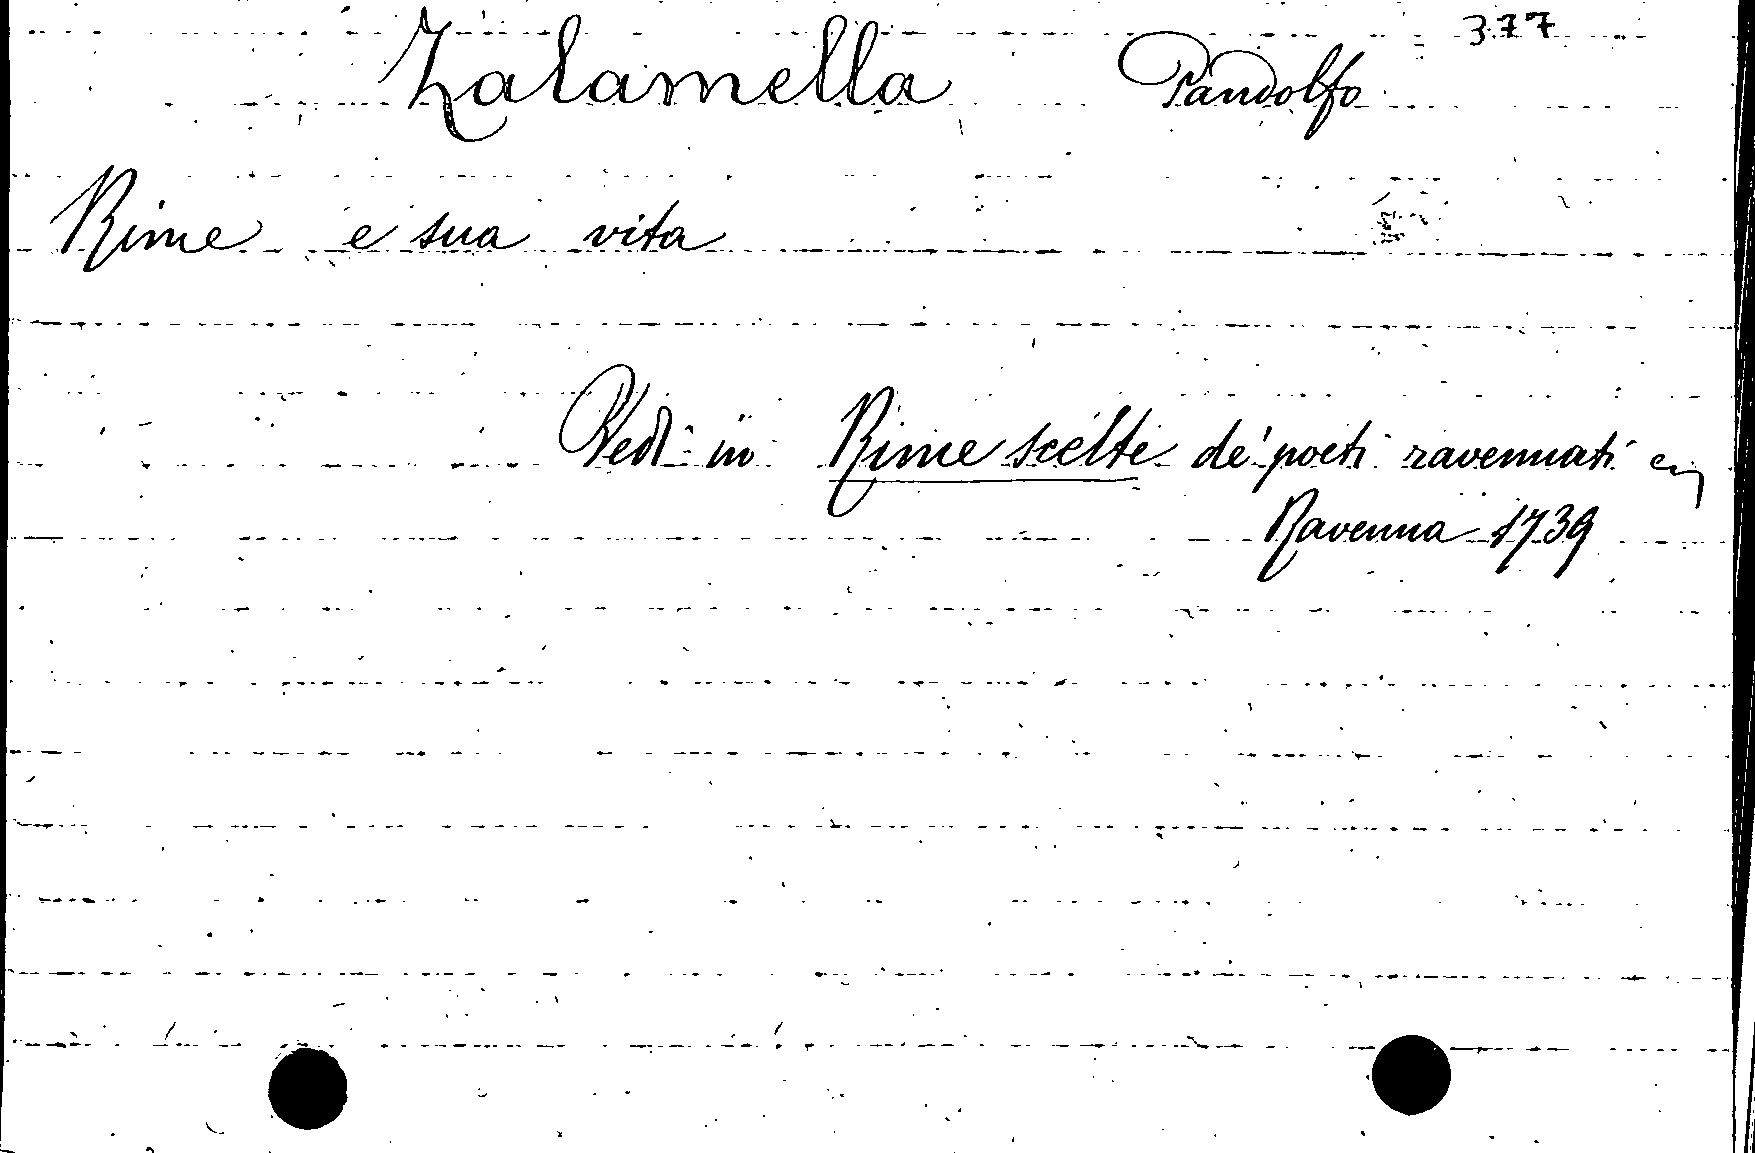 377
Zalamella Pandolfo
Rime e sua vita
Vedi in Rime scelte de' poeti ravennati
Ravenna 1739